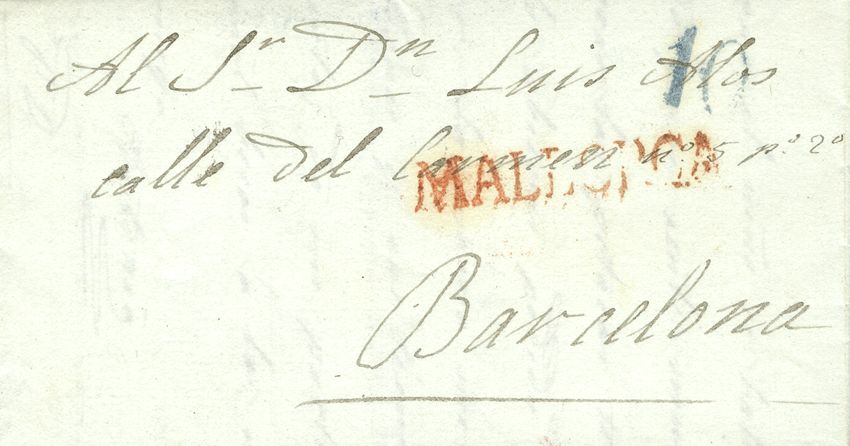 Al Sr Dn Luis Alos
10
calle del Carmen nº 5 pº 2º
MALLORCA
Barcelona